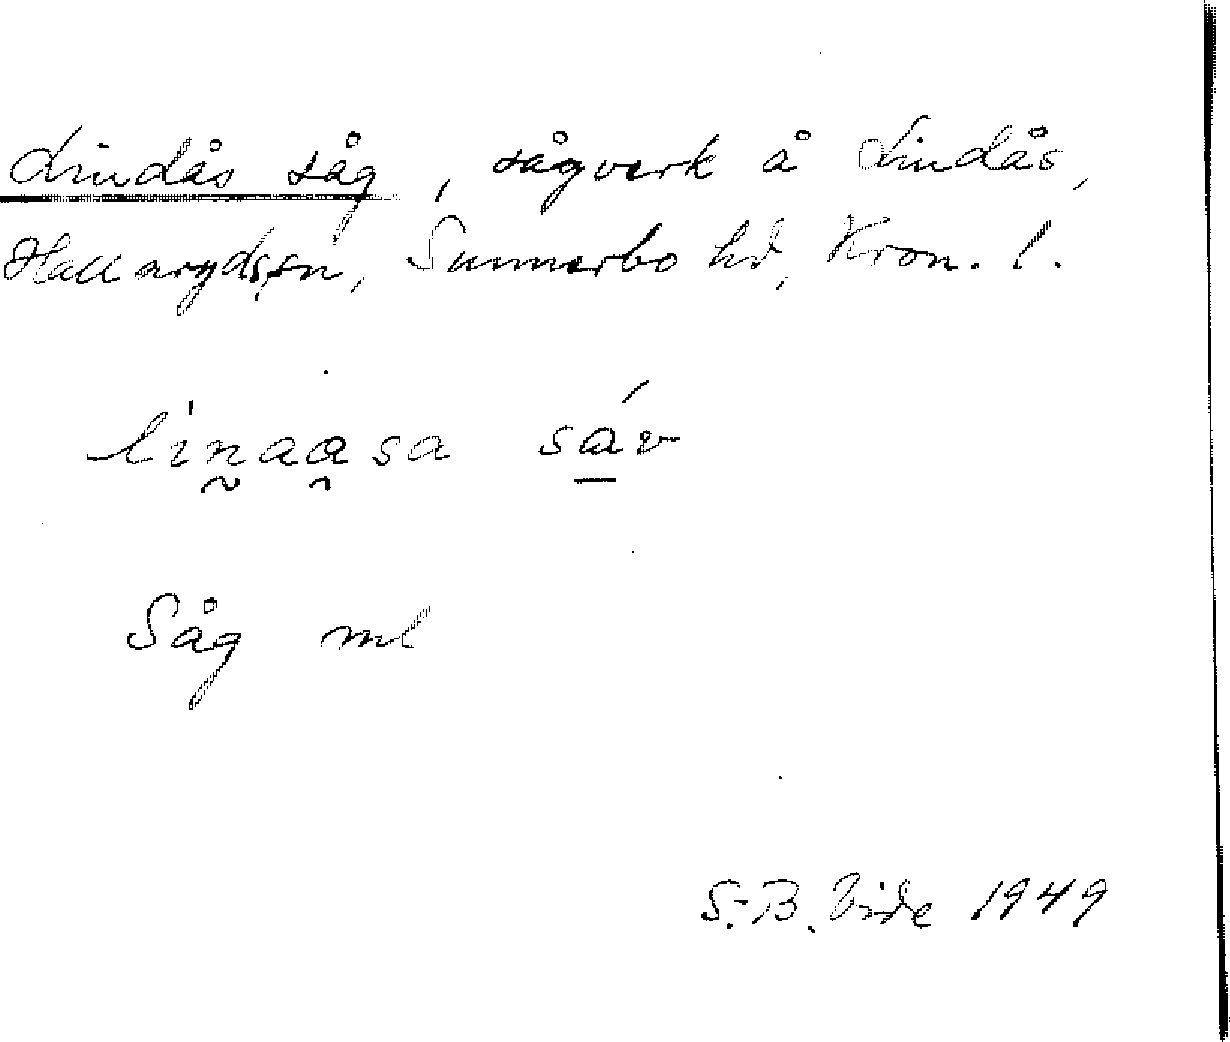 Lindås såg, sågverk å Lindås,
Hallaryds sn, Sunnerbo hd, Kron. l.
linaasa sav
Såg ml
S.-B. Vide 1949